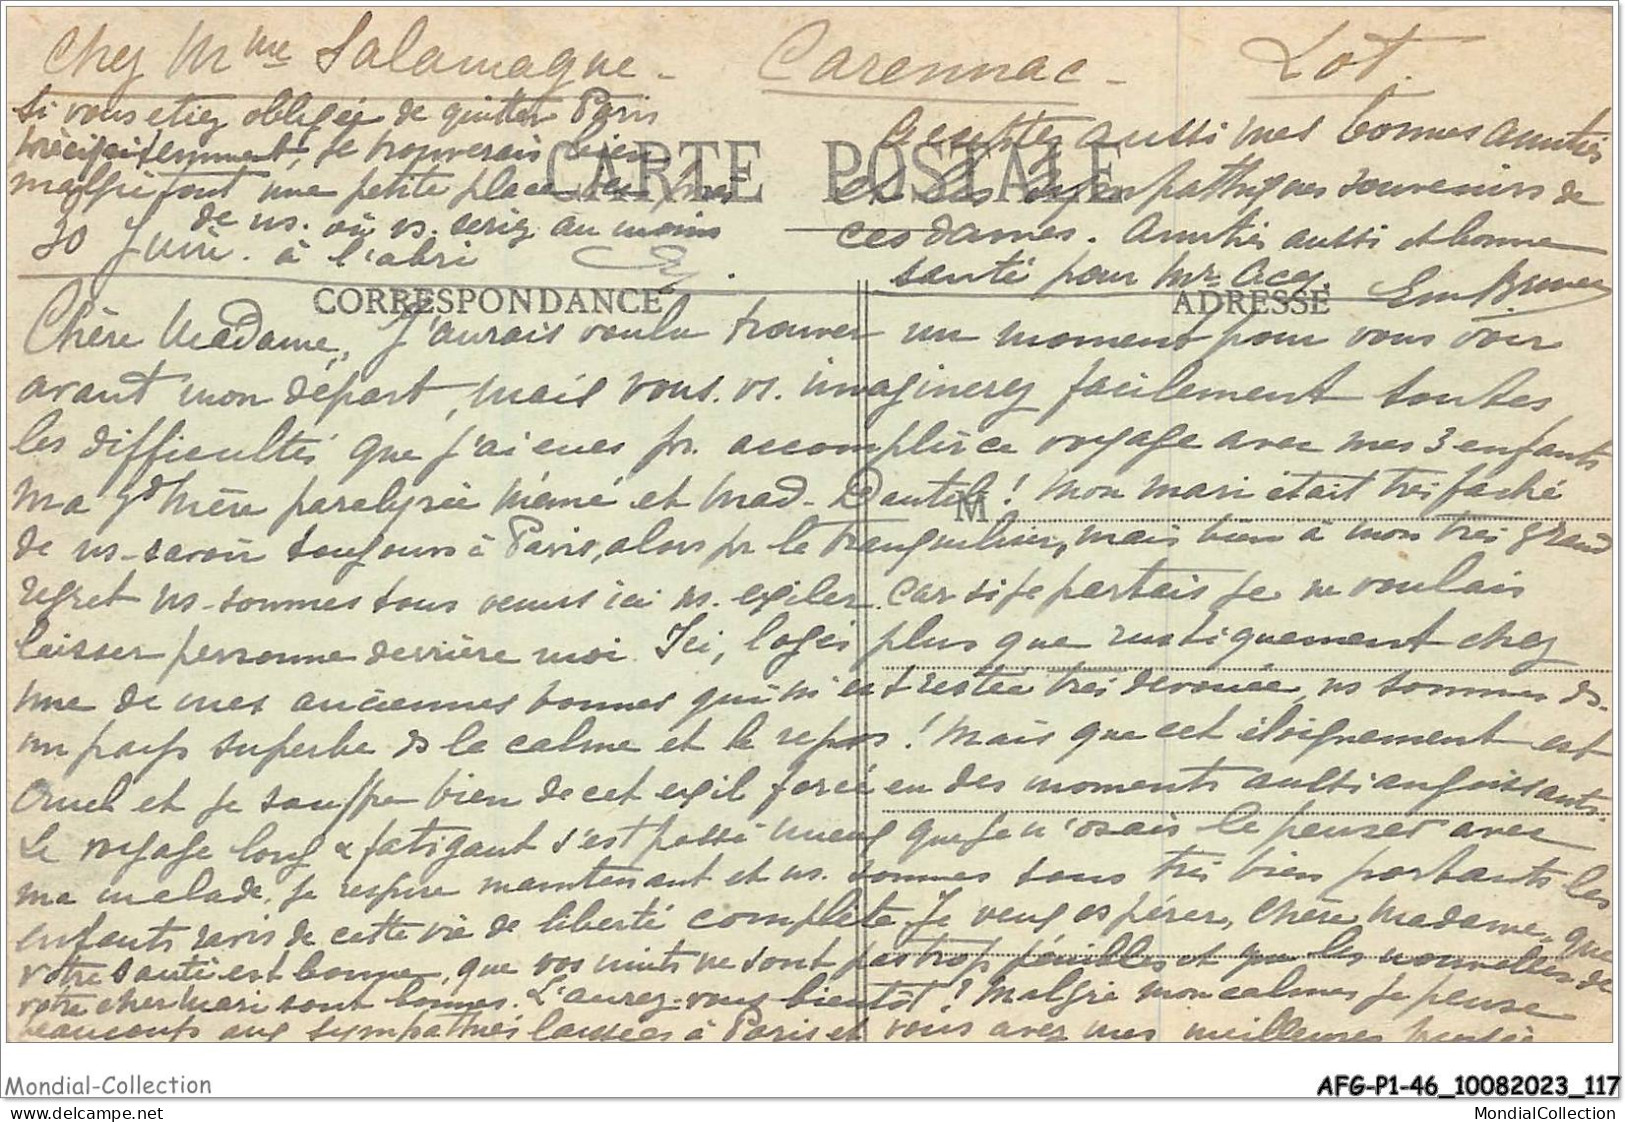 Chez Mme Salamagne - Carennac - Lot.
Si vous etiez obligée de quitter Paris
précipitemment, je trouverais bien
malgré tout une petite place
de ns. où vs. seriez au moins
à l'abri
30 Juin.
CARTE POSTALE
CORRESPONDANCE
ADRESSE
M
Chère Madame, J'aurais voulu trouver un moment pour vous voir
avant mon départ, mais vous. vs. imaginerez facilement toutes
les difficultés que j'ai eues pr. accomplir ce voyage avec mes 3 enfants
ma gd mère paralysée mémé et Mad. ! Mon mari était très faché
de ns-savoir toujours à Paris, alors pr le tranquiliser, mais bien à mon très grand
regret ns-sommes tous venus ici ns. exiler. Car si je partais je ne voulais
laisser personne derrière moi. Ici, logés plus que rustiquement chez
une de mes anciennes bonnes qui m'est restée très dévouée, ns sommes ds-
un pays superbe ds le calme et le repos ! Mais que cet éloignement est
cruel et je souffre bien de cet exil forcé en des moments aussi angoissants.
Le voyage long & fatigant s'est passé mieux que je n'osais le penser avec
ma malade. je respire maintenant et ns. sommes tous très bien portants les
enfants ravis de cette vie de liberté complète. Je veux espérer, Chère Madame, que
votre santé est bonne, que vos nuits ne sont pas trop pénibles et que les nouvelles de
votre cher mari sont bonnes. L'aurez-vous bientôt ? Malgré mon calme je pense
beaucoup aux sympathies laissées à Paris et vous avez mes meilleures pensées
Acceptez aussi mes bonnes amitiés
et les sympathiques souvenirs de
ces dames. Amitiés aussi et bonne
santé pour Mr Acq.
Mondial-Collection
AFG-P1-46_10082023_117
MondialCollection